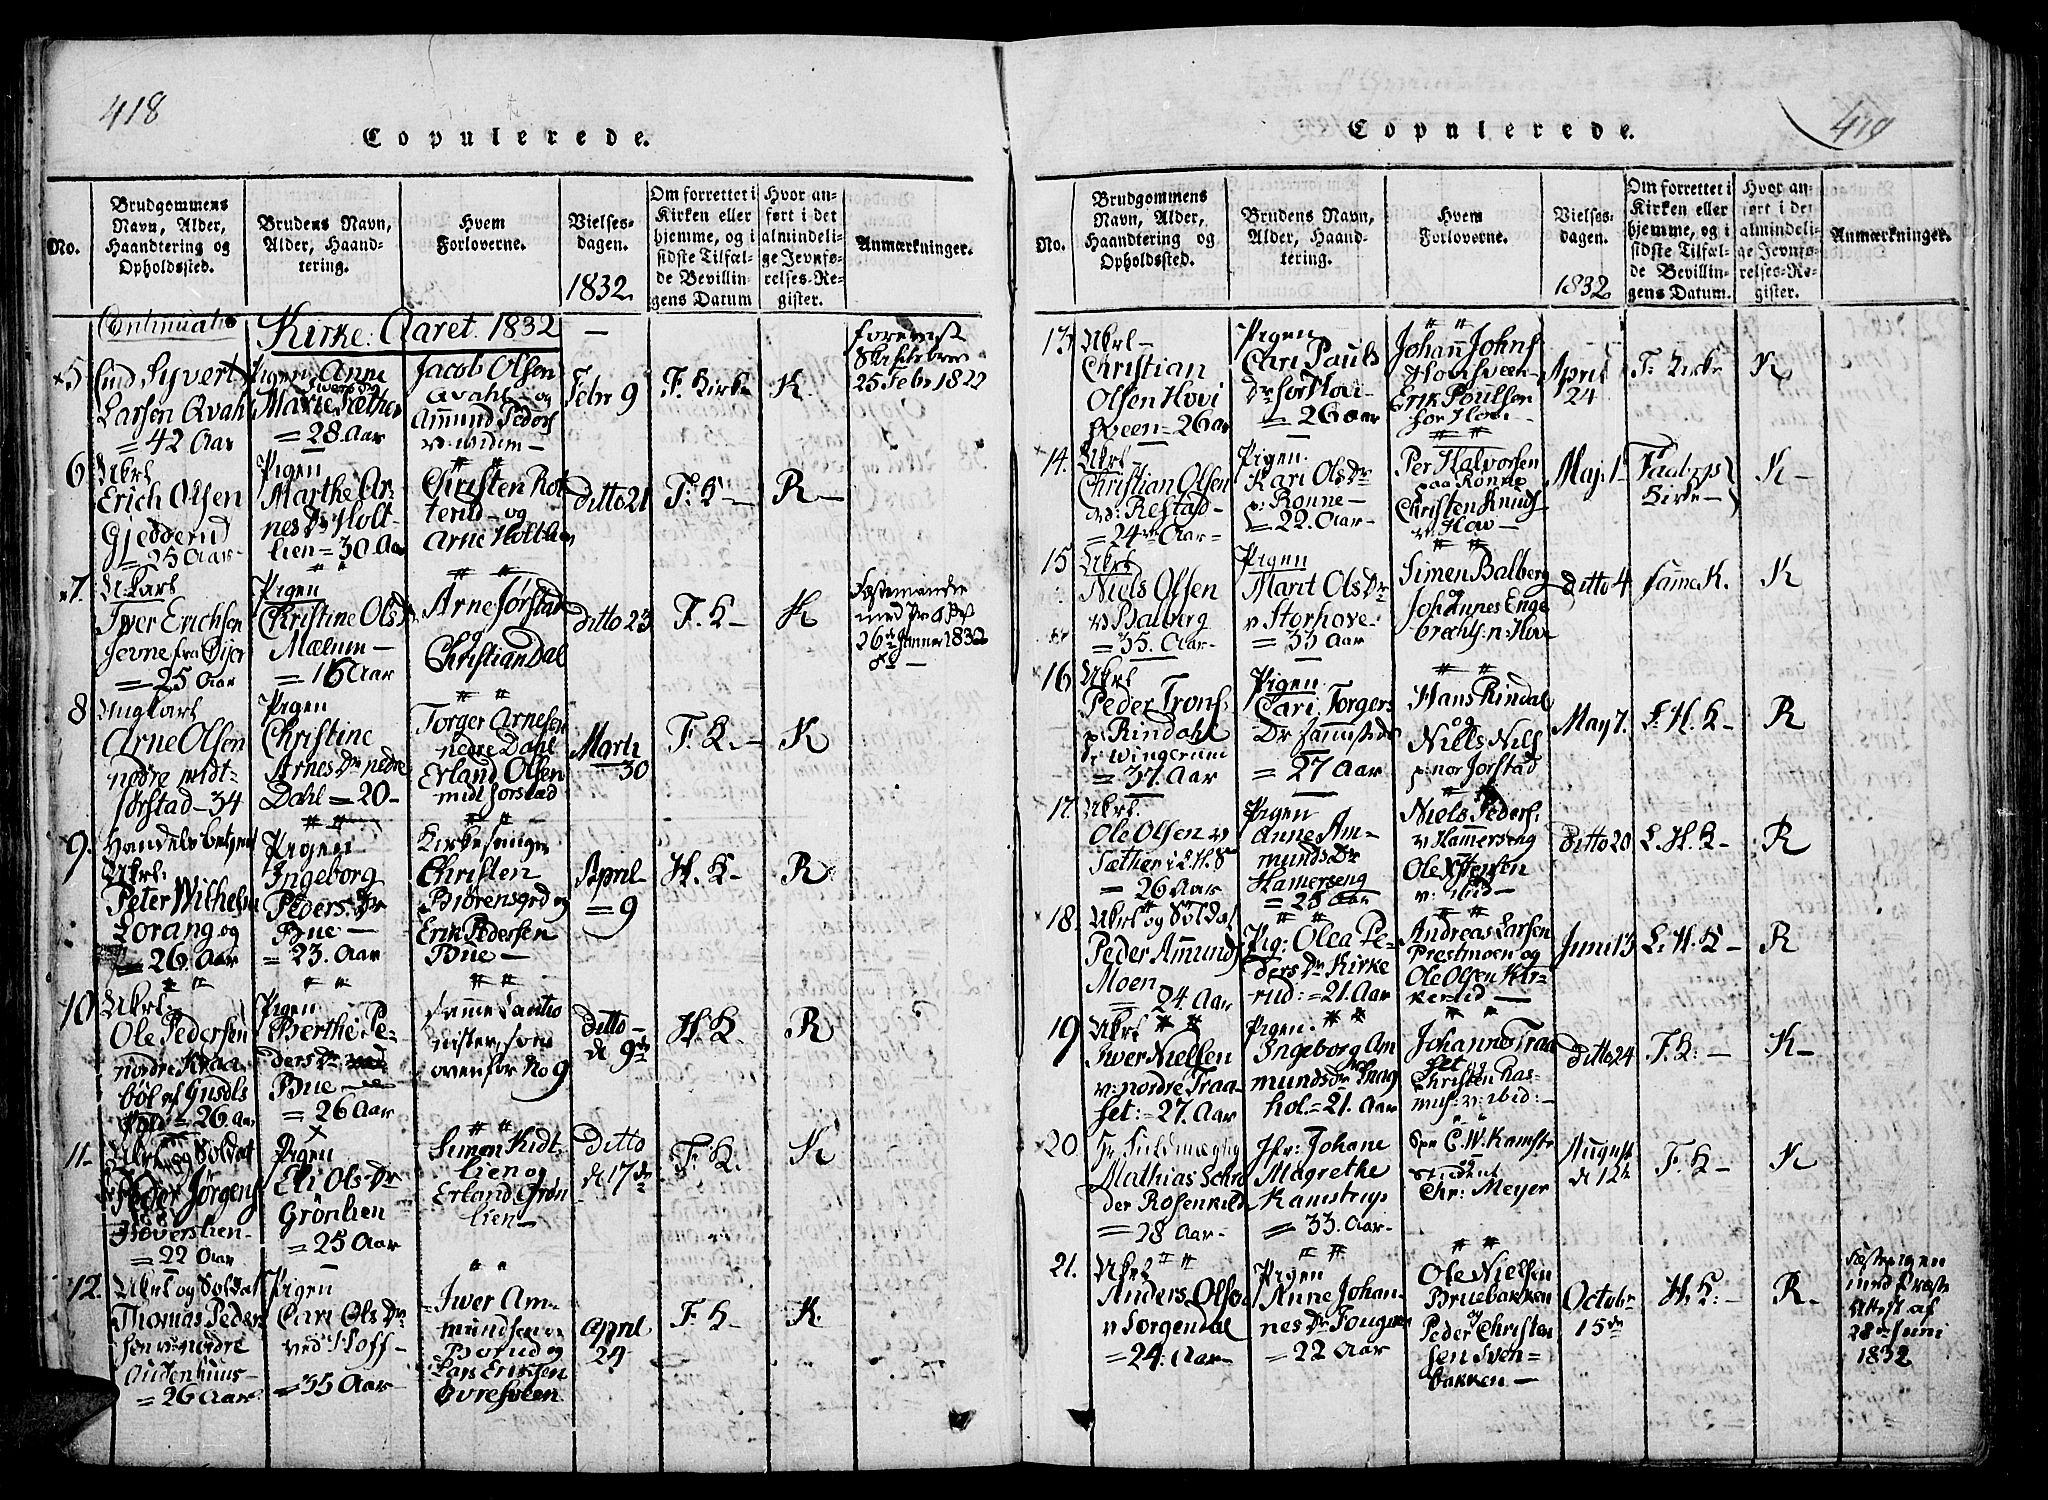 418
Copulerede.
No.
Brudgommens
Navn, Alder,
Haandtering og
Opholdssted.
Brudens Navn,
Alder, Haand-
tering.
Hvem
Forloverne.
Vielses-
dagen.
1832.
Om forrettet i
Kirken eller
hjemme, og i
sidste Tilfæl-
de Bevillin-
gens Datum
Hvor an-
ført i det
almindeli-
ge Jevnfø-
relses-Re-
gister.
Anmærkninger.
Continuatio
Kirke: Aaret. 1832
5
Syvert
Larsen Qvahl
= 42 Aar
Pigen Anne
Marie Sæther
= 28. Aar
Jacob Olsen
Qvahl - og
Ammund Peders
v: widem -
Febr 9
F. Kirke
K.
forevist
Skiftebrev
25 Febr 1822
6
Ukrl
Erich Olsen
Gjedderud
= 25 Aar -
Pigen
Marthe Ar-
nes Dr Holt-
lien = 30 Aar
Christen Rot
terud - og
Arne Holt
Ditto 21
F: K -
R -
7.
Ukarl
Iwer Erichsen
Jevne fra Öijer
= 25 Aar
Pigen
Christine Ols Dr
Mælum -
= 16 Aar
Arne Jørstad
og
Christian Dal
Ditto 23
F. K -
K
Fæstemanden
med Pr
26de Januar 1832
8
Ungkarl
Arne Olsen
nedre midt-
Jørstad - 34
Pigen
Christine
Arnes Dr nedre
Dahl = 20 -
Torger Arnesen
nedre Dahl
Erland Olsen
midt Jørstad
Marti
30
F. K. -
K
9.
Handelsbetjent
Ukrl:
Peter Wilhelm
Lorang og
= 26. Aar
Pigen
Ingeborg
Peders: Dr
Bue -
= 23. Aar
Kirkesanger
Christen
Biörensgrd og
Erik Pedersen
Bue -
April
= 9
H. K -
R
10
Ukrl
Ole Pedersen
nordre Kraa
böl af Gusdls
= 26. Aar
Pigen
Berthe Pe-
ders Dr
Bue -
= 26 Aar
samme Cautio
nister, som
ovenfor No 9
Ditto -
d 9de
H: K.
R
11 -
Ukrl og Soldat
Jørgens
Hoverslien -
= 22 Aar
Pigen
Eli Ols Dr
Grönlien
= 25 Aar
Simen Kidt-
lien og
Erland Grön
lien -
Ditto
d 17de
F: K.
K
12.
Ukrl og Soldat
Thomas Peder
sen v: nordre
Audenhuus -
= 26 Aar
Pigen
Cari Ols Dr
ved Hoff -
= 35 Aar
Iwer Am-
mundsen
og
Lars Eriksen
Øvresveen
April
24
F: K -
K.
419
Copulerede.
No.
Brudgommens
Navn, Alder,
Haandtering og
Opholdssted.
Brudens Navn,
Alder, Haand-
tering.
Hvem
Forloverne.
Vielses-
dagen.
1832
Om forrettet i
Kirken eller
hjemme, og i
sidste Tilfæl-
de Bevillin-
gens Datum.
Hvor an-
ført i det
almindeli-
ge Jevnfø-
relses-Re-
gister.
Anmærkninger.
13
Ukrl -
Christian
Olsen Hovi
sveen = 26 ar
Pigen
Cari Pauls
Dr for Hovi -
= 26 Aar
Johan Johns
Hovisveen -
Erik Poulsen
for Hovi -
April
24
F: Kirke
K
14.
Ukrl -
Christian Olsen
v: Restad -
= 24re Aar =
Pigen.
Kari Ols Dr
Rønne -
= 22. Aar -
Per Halvorsen
paa Rønne
Christen Knuds-
v: Hov -
Maj: 1
Faabergs
Kirke -
K -
15
Ukrl
Niels Olsen
v: Balberg
= 35. Aar -
Pigen
Marit Ols Dr
v Storhove -
= 33 Aar
Simen Balberg
og
Johannes Enge
brechts: n: Hove
Ditto 4
samme K.
K
16
Ukrl
Peder Trons-
Rindahl
fr: Wingerum
= 37. Aar
Pigen
Cari: Torgers
Dr Jammstad
= 27 Aar
Hans Rindal
og
Niels Nils
p: nor Jørstad
May 7.
L: H. K -
R
17.
Ukrl.
Ole Olsen v
Sæther i L H. S
= 26 Aar
Pigen
Anne Am-
munds Dr
Hamerseng
= 25 Aar
Niels Peders:
v Hammerseng
Ole Stensen
v: ibid -
Ditto 20
L. H. K -
R
18.
Ukrl og Soldat
Peder Amunds
Moen
= 24 Aar
Pig: Olea Pe-
ders Dr Kirke
rud: = 21. Aar
Andreas Larsen
Prestmoen og
Ole Olsen Kir-
kerud -
Juni 13
L: H. K -
R
19
Ukrl
Iwer Nielsen
v: nordre Traa-
set: = 27. Aar
Pigen.
Ingeborg Am
munds Dr Haag
hol. = 21. Aar
Johannes Traa
set og
Christen Ras-
mus: v: ibid: -
Ditto 24
F. K: -
K -
20.
Hr: Fuldmægtig
Mathias Schrø
der Rosenkilde
= 28 Aar -
Jfr: Johane
Magrethe
Kamstrup
= 33. Aar -
C. W. Kamstr
Student
Chr: Meyer
August
d 12te
F. K -
K
21.
Ukrl
Anders Olsen
v Sorgendal
= 24: Aar -
Pigen
Anne Johan-
nes Dr Fougner
= 22 Aar
Ole Nielsen
Bruebakken
og
Peder Christen
sen Sven-
bakken -
Octobr
15de
H. K: -
R -
Fæstepigen
med Præste
Attest af
28de Juni
1832